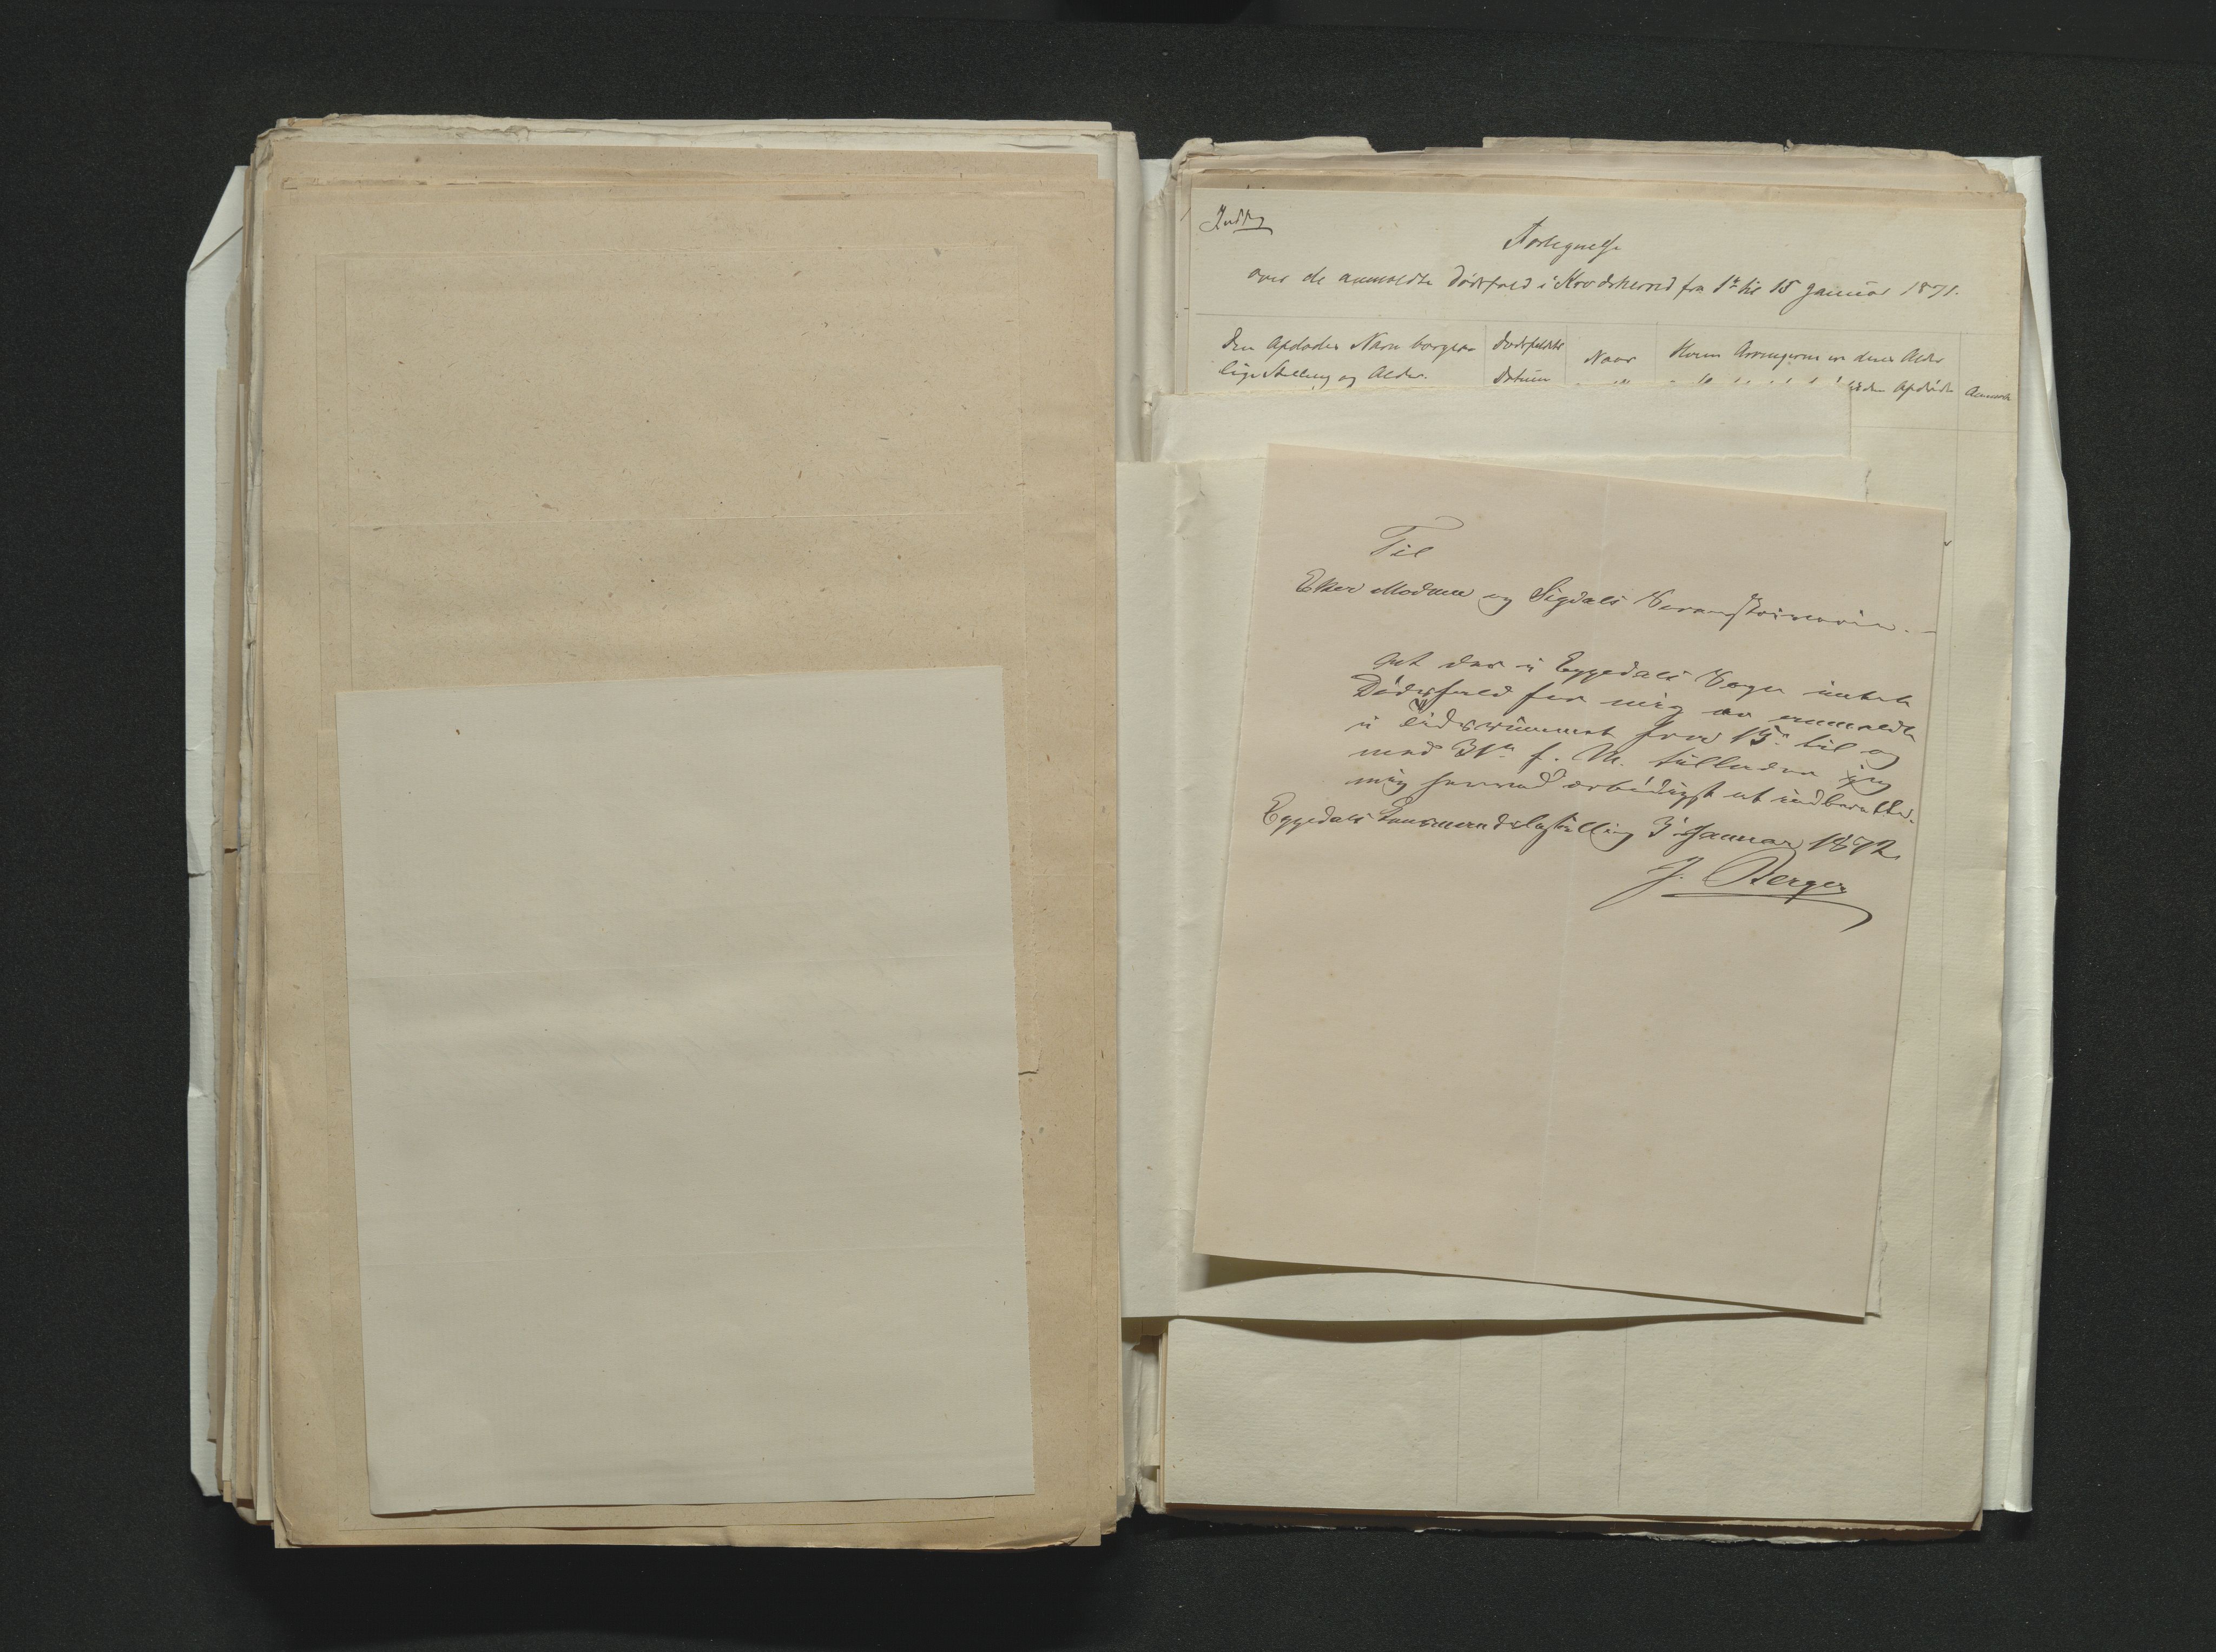 Indtg
Fortegnelse
over de anmeldte Dødsfald i Krødsherred fra 1ste til 15 Januar 1871.
Den Afdødes Navn borger-
lige Stilling og Alder.
Dødsfaldets
Datum
Naar
Hvem Arvingerne er deres Alder
den Afdøde
Anmærk
Til
Eker Modum og Sigdals Sorenskriveri.
At der i Eggedals Sogn intet
Dødsfald for mig er anmeldt
i Tidsrummet fra 15de til og
med 31te f. M. tillader jeg
mig herved ærbødigst at indberette.
Eggedals Lensmandsbestilling 3 Januar 1872
J. Berger